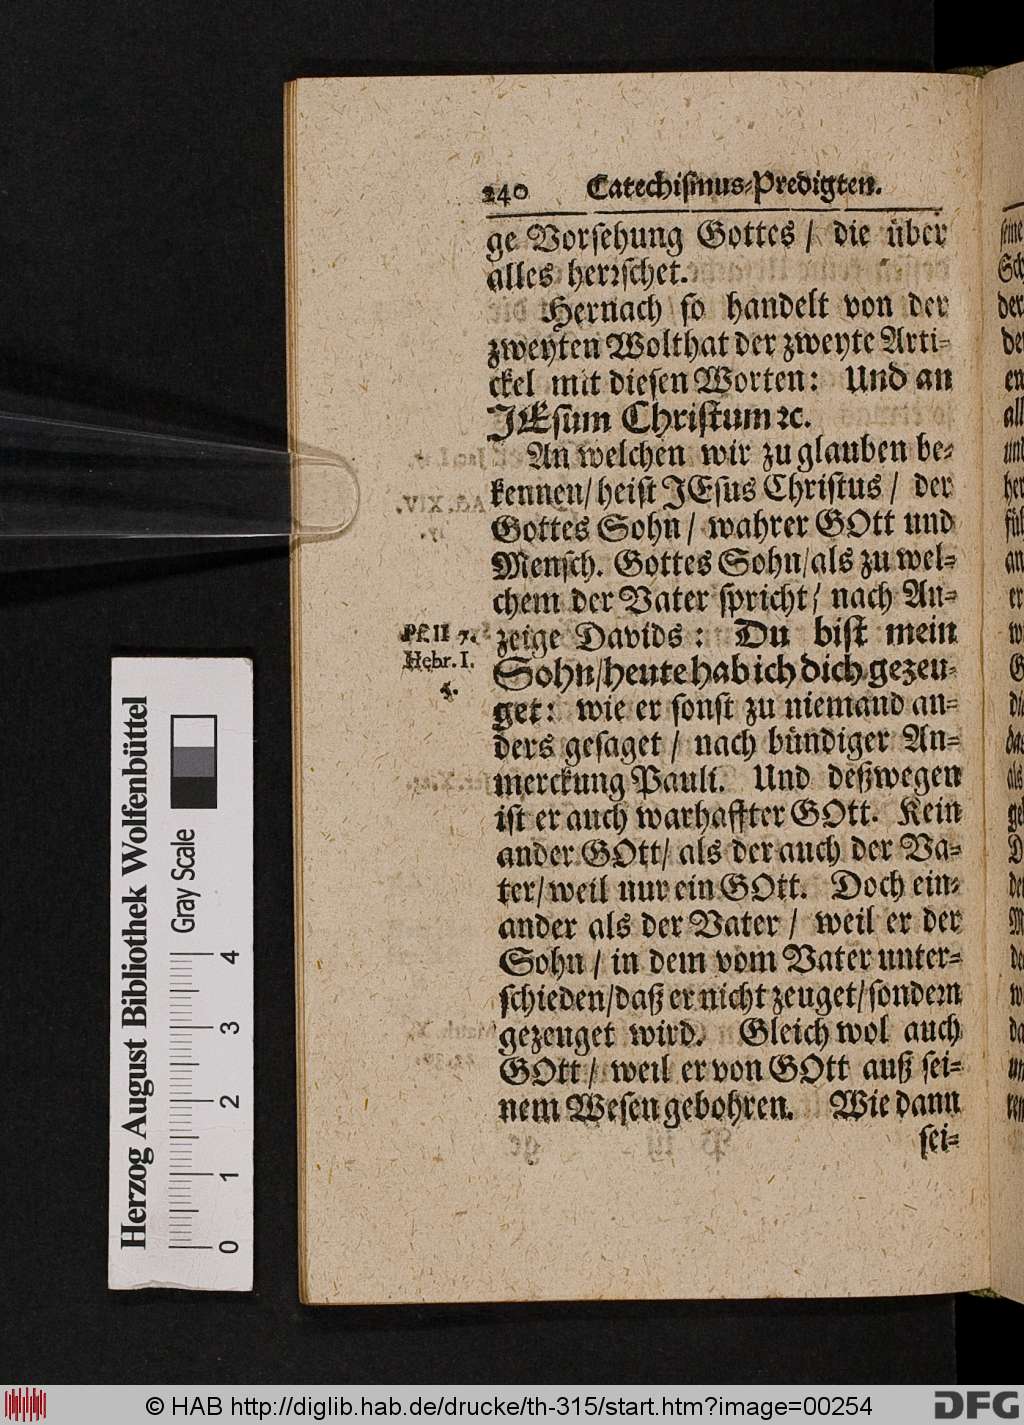 240 Catechismus-Predigten.
ge Vorsehung Gottes / die über
alles herrschet.
Hernach so handelt von der
zweyten Wolthat der zweyte Arti-
ckel mit diesen Worten: Und an
JEsum Christum ꝛc.
An welchen wir zu glauben be-
kennen/ heist JEsus Christus / der
Gottes Sohn / wahrer GOtt und
Mensch. Gottes Sohn/als zu wel-
chem der Vater spricht / nach An-
Ps. II 7.
zeige Davids: Du bist mein
Hebr. I.
Sohn/heute hab ich dich gezeu-
5.
get: wie er sonst zu niemand an-
ders gesaget / nach bündiger An-
merckung Pauli. Und deßwegen
ist er auch warhaffter GOtt. Kein
ander GOtt/ als der auch der Va-
ter/ weil nur ein GOtt. Doch ein-
ander als der Vater / weil er der
Sohn / in dem vom Vater unter-
schieden/daß er nicht zeuget/sondern
gezeuget wird. Gleich wol auch
GOtt / weil er von GOtt auß sei-
nem Wesen gebohren. Wie dann
sei-
Herzog August Bibliothek Wolfenbüttel
Gray Scale
0 1 2 3 4
© HAB http://diglib.hab.de/drucke/th-315/start.htm?image=00254
DFG